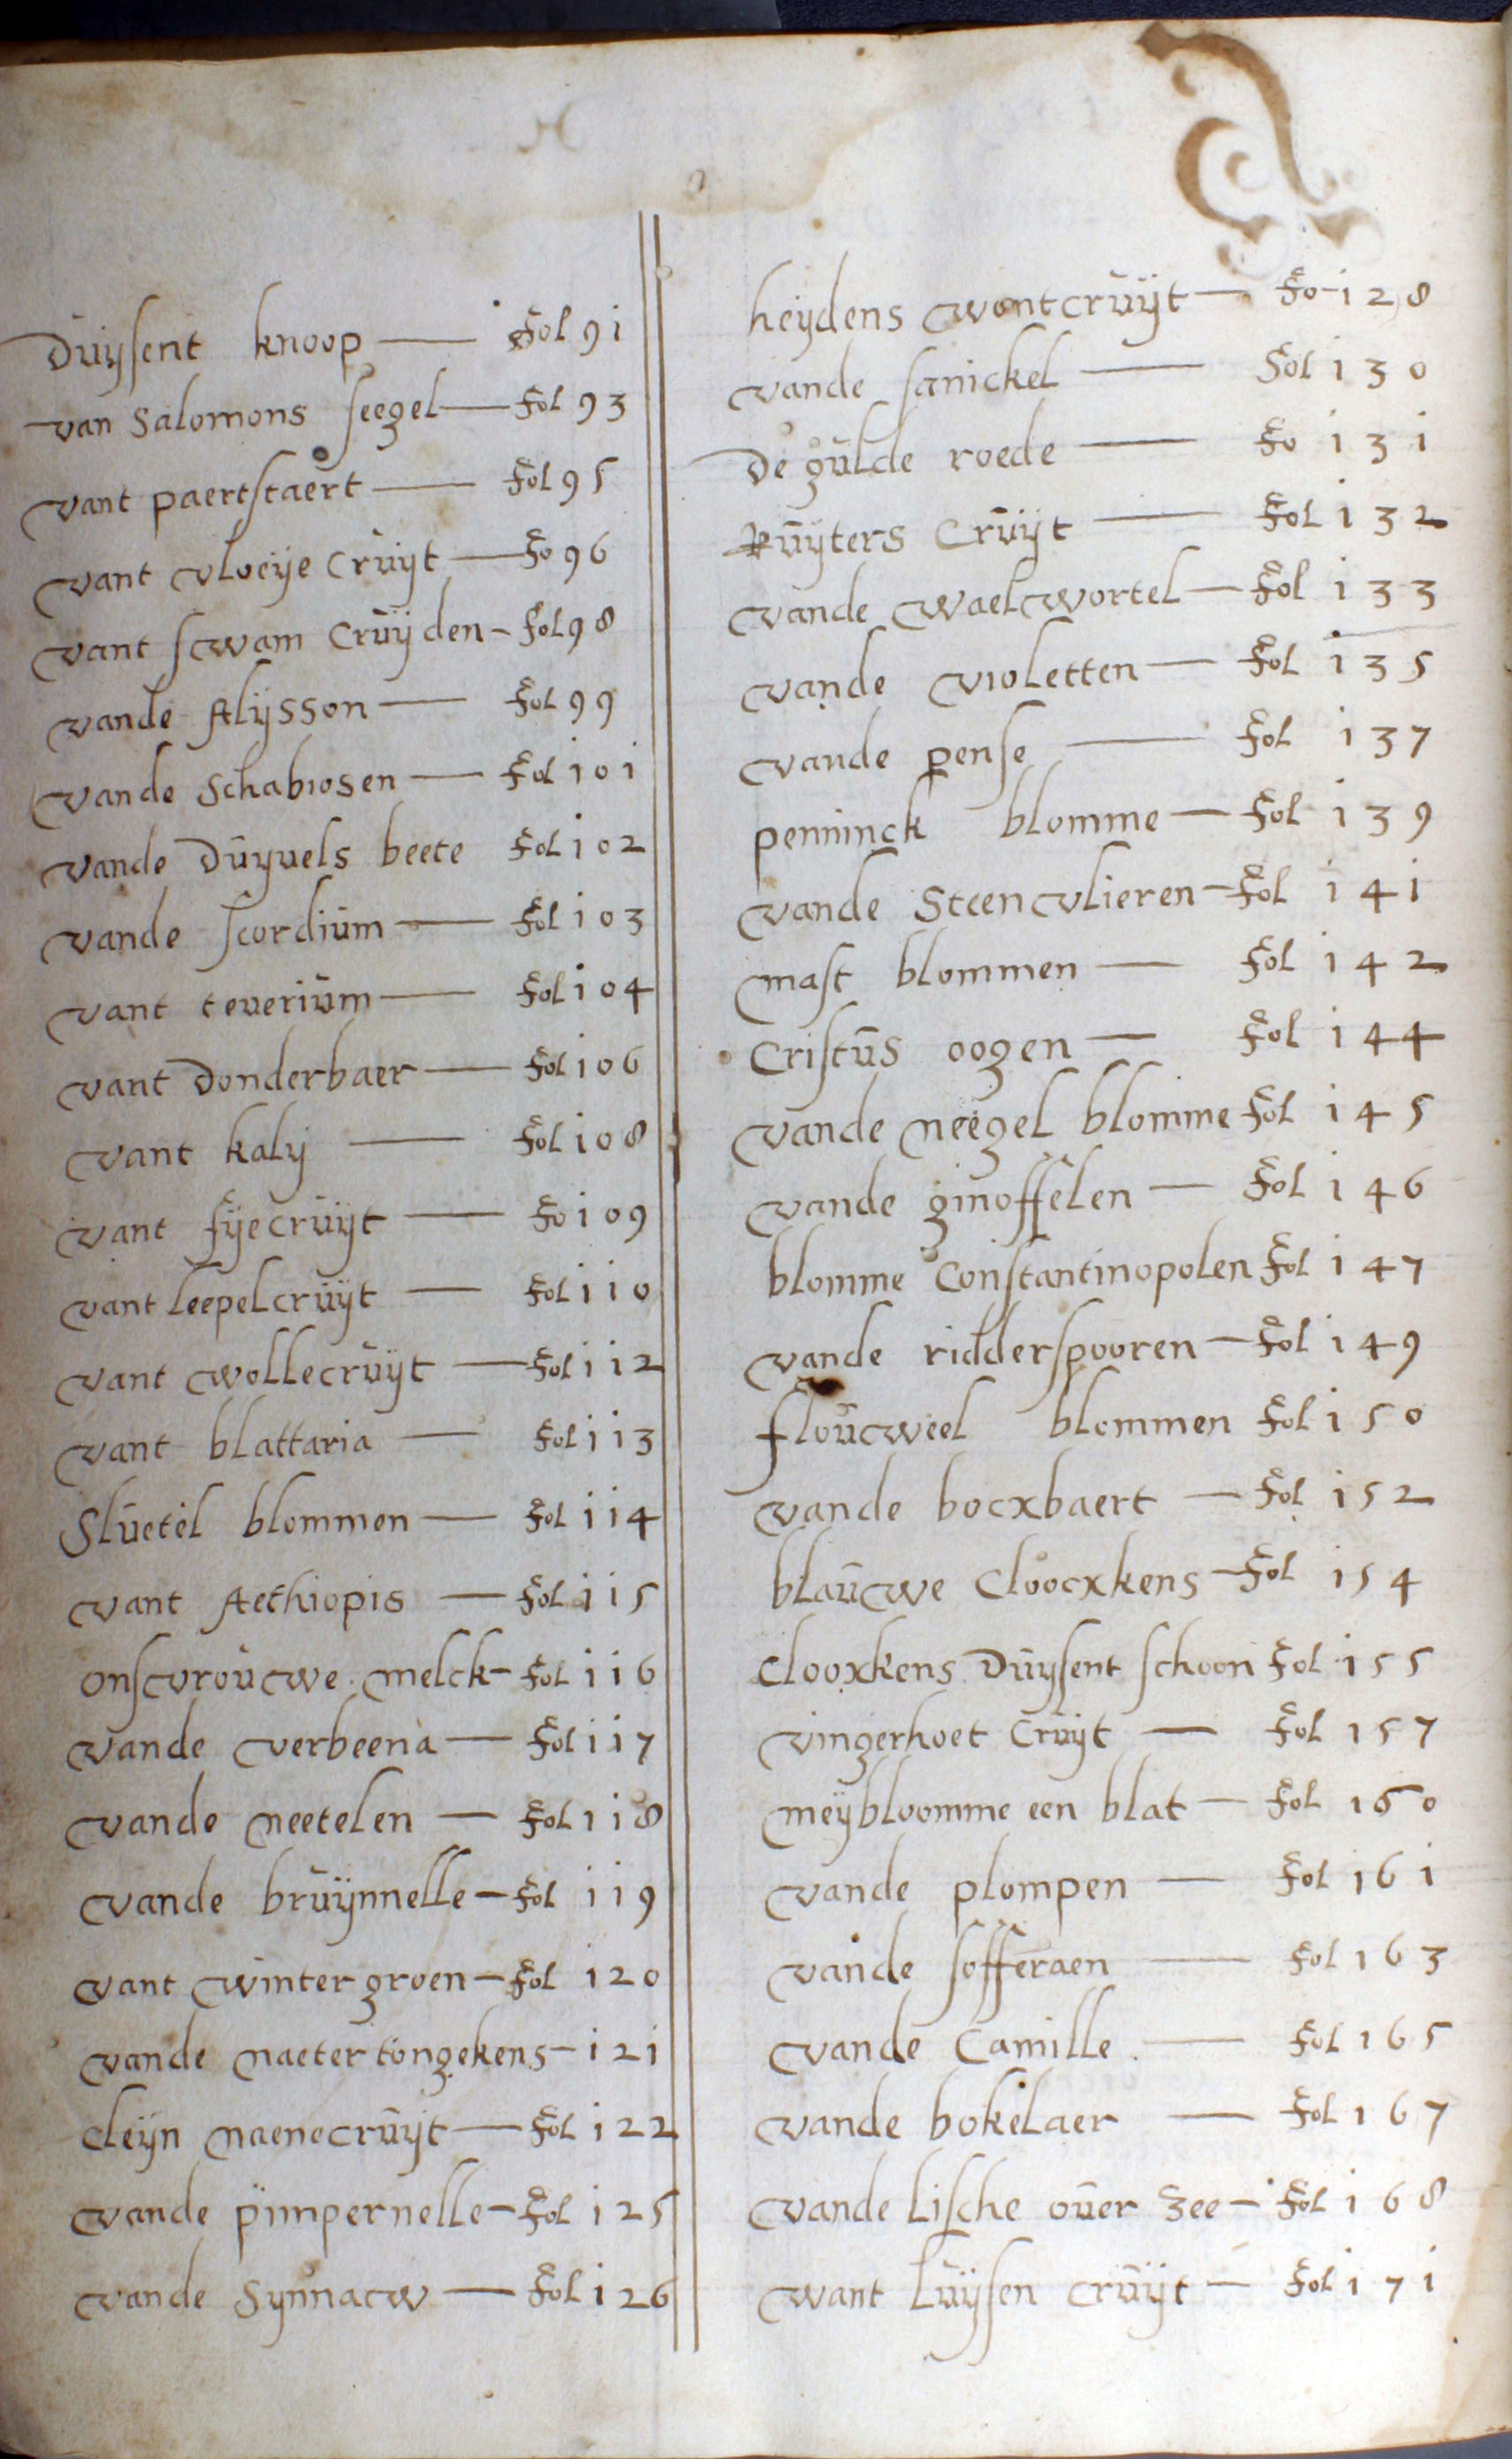 Duysent knoop — Fol 91
van Salomons seegel — Fol 93
vant paertstaert — Fol 95
vant vloeÿe Cruÿt — Fo 96
vant swam Cruÿden - Fol 98
vande Alÿsson — Fol 99
vande Schabiosen — Fol 101
vande Duyuels beete Fol 102
vande scordium — Fol 103
vant teuerium — Fol 104
vant Donderbaer — Fol 106
vant kalÿ — Fol 108
vant fÿecruÿt — Fo 109
vant leepelcruÿt — Fol 110
vant wollecruÿt — Fol 112
vant blattaria — Fol 113
Sluetel blommen — Fol 114
vant Aethiopis — Fol 115
onsvrouwe melck - Fol 116
vande verbeena — Fol 117
vande neetelen — Fol 118
vande bruÿnnelle - Fol 119
vant winter groen - Fol 120
vande naeter tongekens - 121
Cleÿn naenecruÿt — Fol 122
vande pimpernelle - Fol 125
vande Synnacw — Fol 126
heÿdens wontcruÿt — Fo 128
vande sanickel — Fol 130
De gulde roede — Fo 131
Ruÿters Cruÿt — Fol 132
vande waelwortel — Fol 133
vande violetten — Fol 135
vande pense — Fol 137
penninck blomme — Fol 139
vande Steenvlieren - Fol 141
mast blommen — Fol 142
Cristus oogen — Fol 144
vande neegel blomme Fol 145
vande ginoffelen — Fol 146
blomme Constantinopolen Fol 147
vande ridderspooren — Fol 149
flouweel blommen Fol 150
vande bocxbaert — Fol 152
blauwe Cloocxkens - Fol 154
Clooxkens Duÿsent schoon Fol 155
vingerhoet Cruÿt — Fol 157
meÿbloomme een blat — Fol 160
vande plompen — Fol 161
vande sofferaen — Fol 163
vande Camille — Fol 165
vande bokelaer — Fol 167
vande Lische ouer Zee - Fol 168
want Luÿsen cruÿt — Fol 171